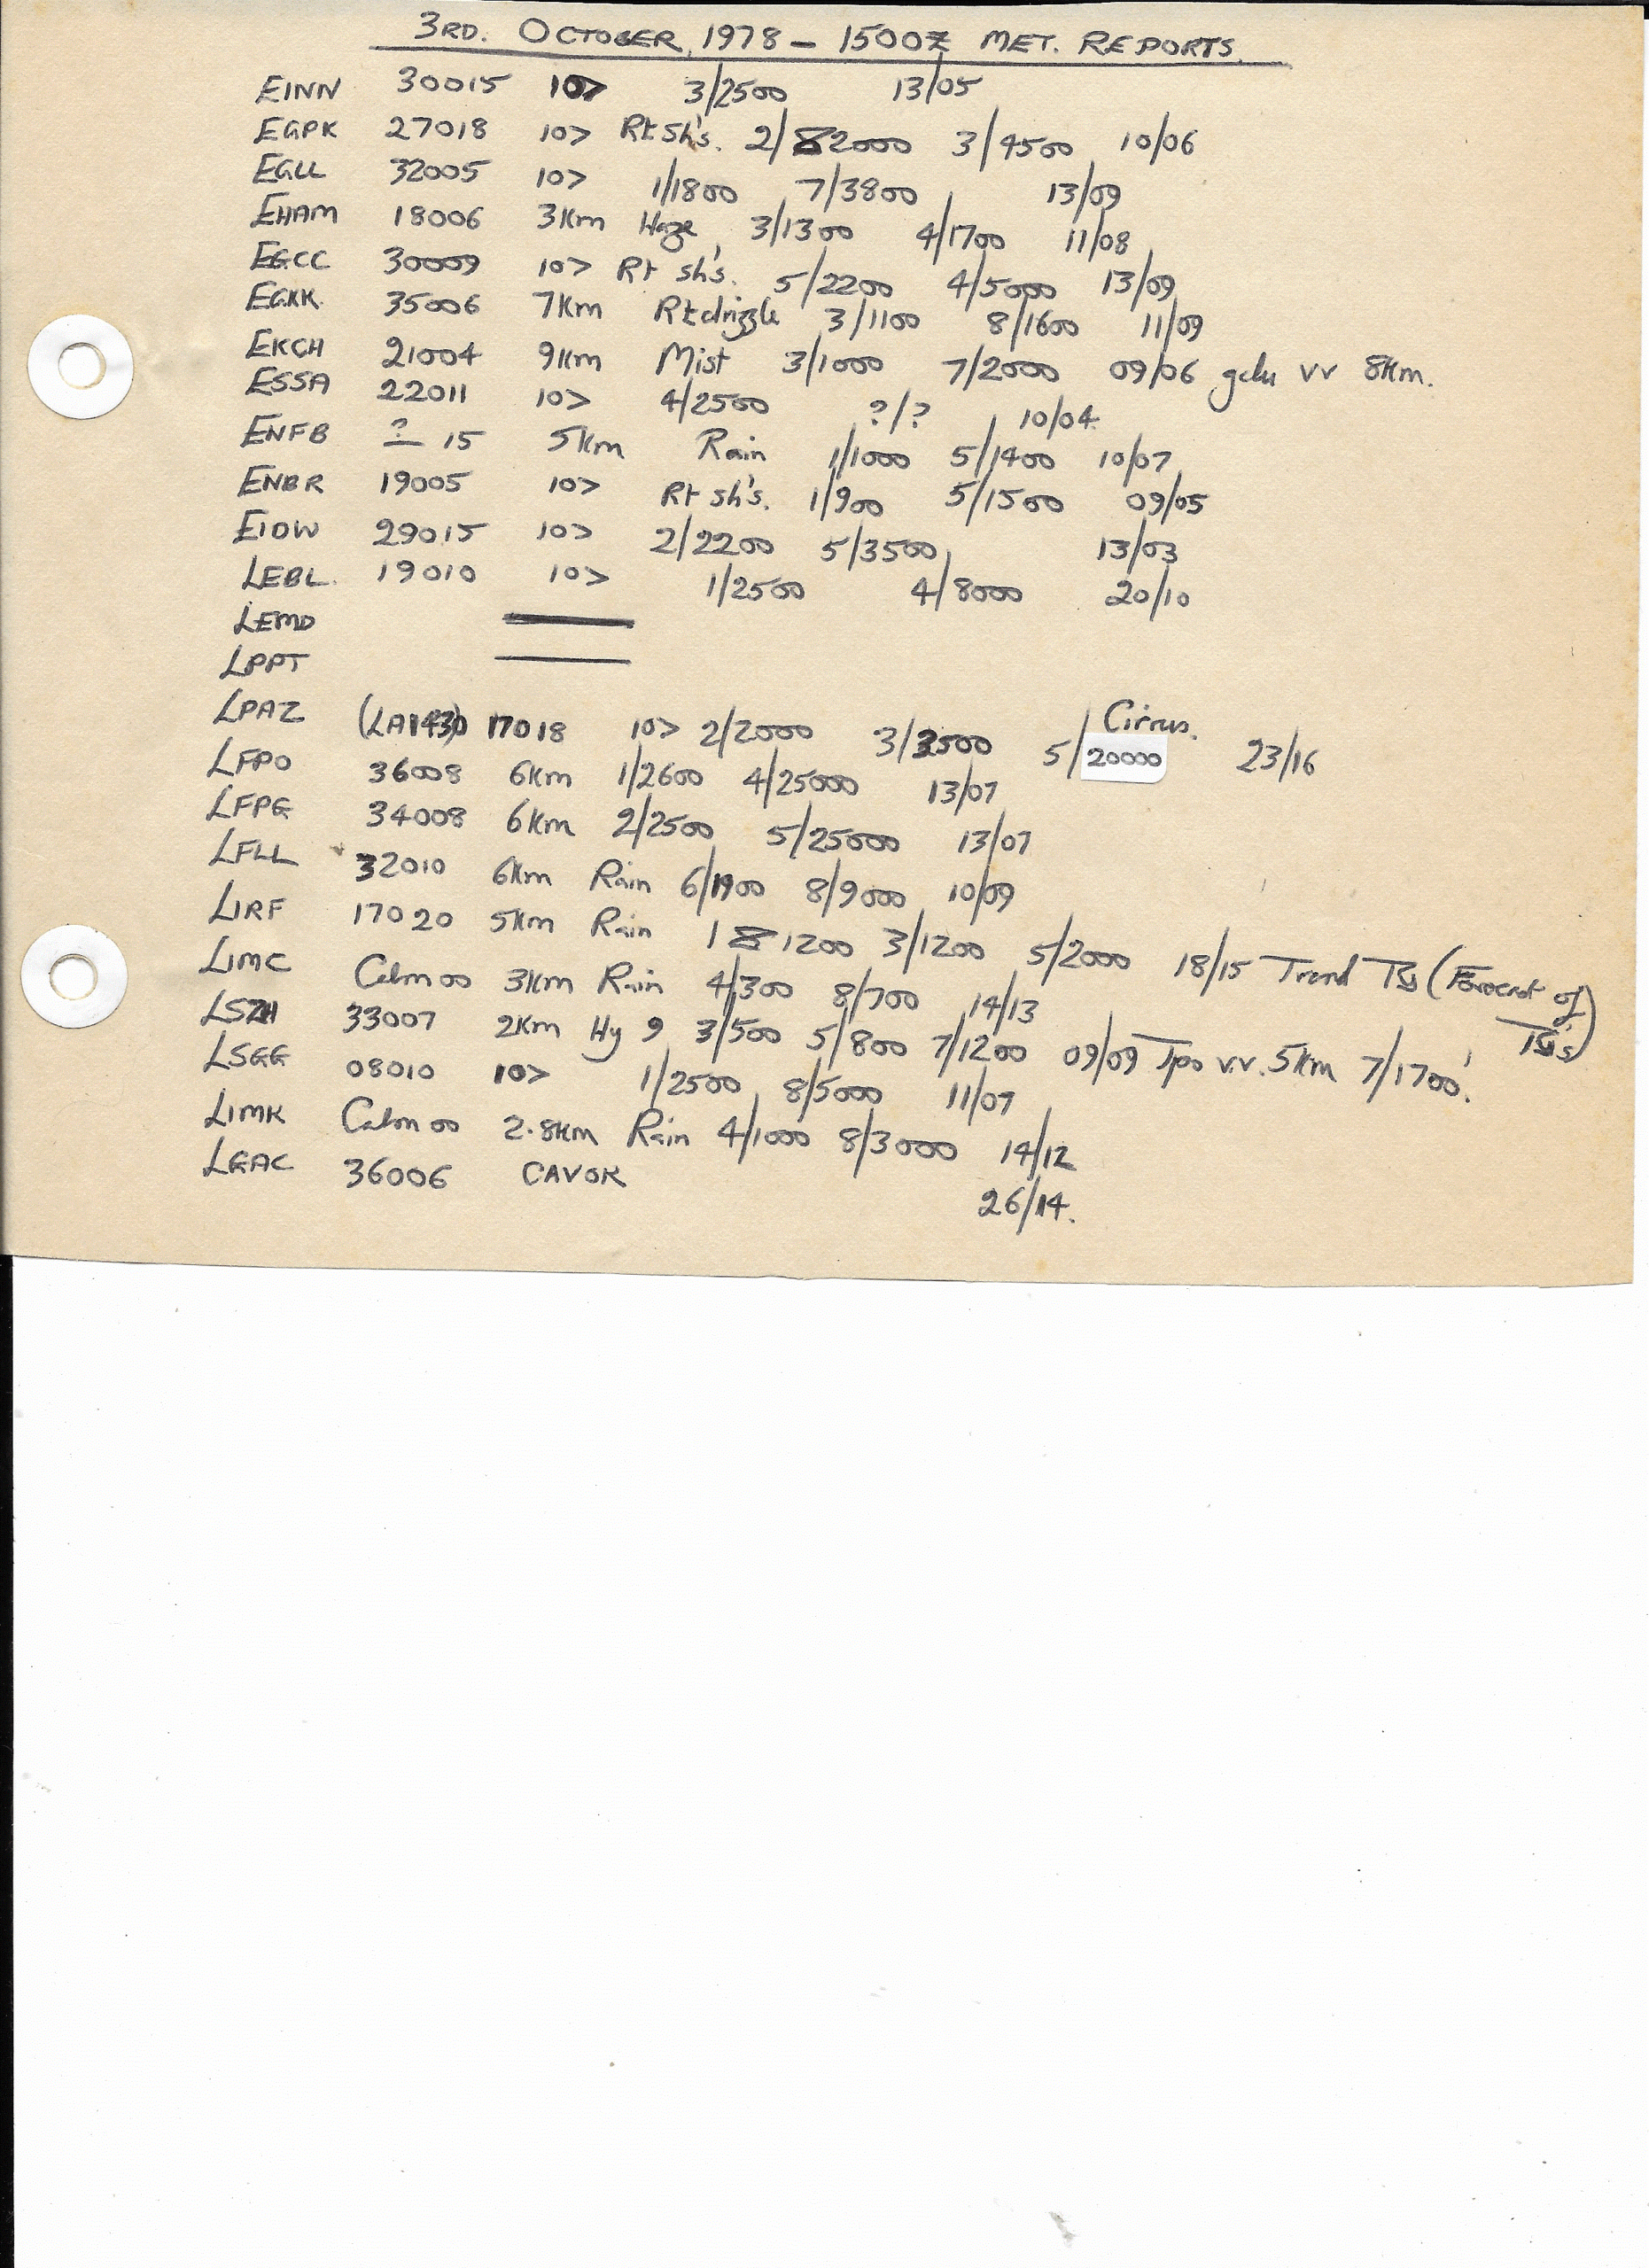 3RD. OCTOBER, 1978 - 1500Z MET. REPORTS.
EINN 30015 10> 3/2500 13/05
EGPK 27018 10> Rt Sh's. 2/2000 3/4500 10/06
EGLL 32005 10> 1/1800 7/3800 13/09
EHAM 18006 3Km Haze 3/1300 4/1700 11/08
EGCC 30009 10> Rt sh's. 5/2200 4/5000 13/09
EGKK. 35006 7Km Rt drizzle 3/1100 8/1600 11/09
EKCH 21004 9Km Mist 3/1000 7/2000 09/06 gdu vv 8Km.
ESSA 22011 10> 4/2500 ?/? 10/04
ENFB ? 15 5Km Rain 1/1000 5/1400 10/07
ENBR 19005 10> Rt sh's. 1/900 5/1500 09/05
EIDW 29015 10> 2/2200 5/3500 13/03
LEBL. 19010 10> 1/2500 4/8000 20/10
LEMD
LPPT
LPAZ (LA1430) 17018 10> 2/2000 3/3500 5/20000 Cirrus. 23/16
LFPO 36008 6Km 1/2600 4/25000 13/07
LFPG 34008 6Km 2/2500 5/25000 13/07
LFLL 32010 6Km Rain 6/1900 8/9000 10/09
LIRF 17020 5Km Rain 1 1200 3/1200 5/2000 18/15 Trend Ts (Forecast of Ts's)
LIMC Calm 00 3Km Rain 4/300 8/700 14/13
LSZH 33007 2Km Hy 9 3/500 5/800 7/1200 09/09 Tpo v.v. 5Km 7/1700'.
LSGG 08010 10> 1/2500 8/5000 11/07
LIMK Calm 00 2.8Km Rain 4/1000 8/3000 14/12
LGAC 36006 CAVOK 26/14.